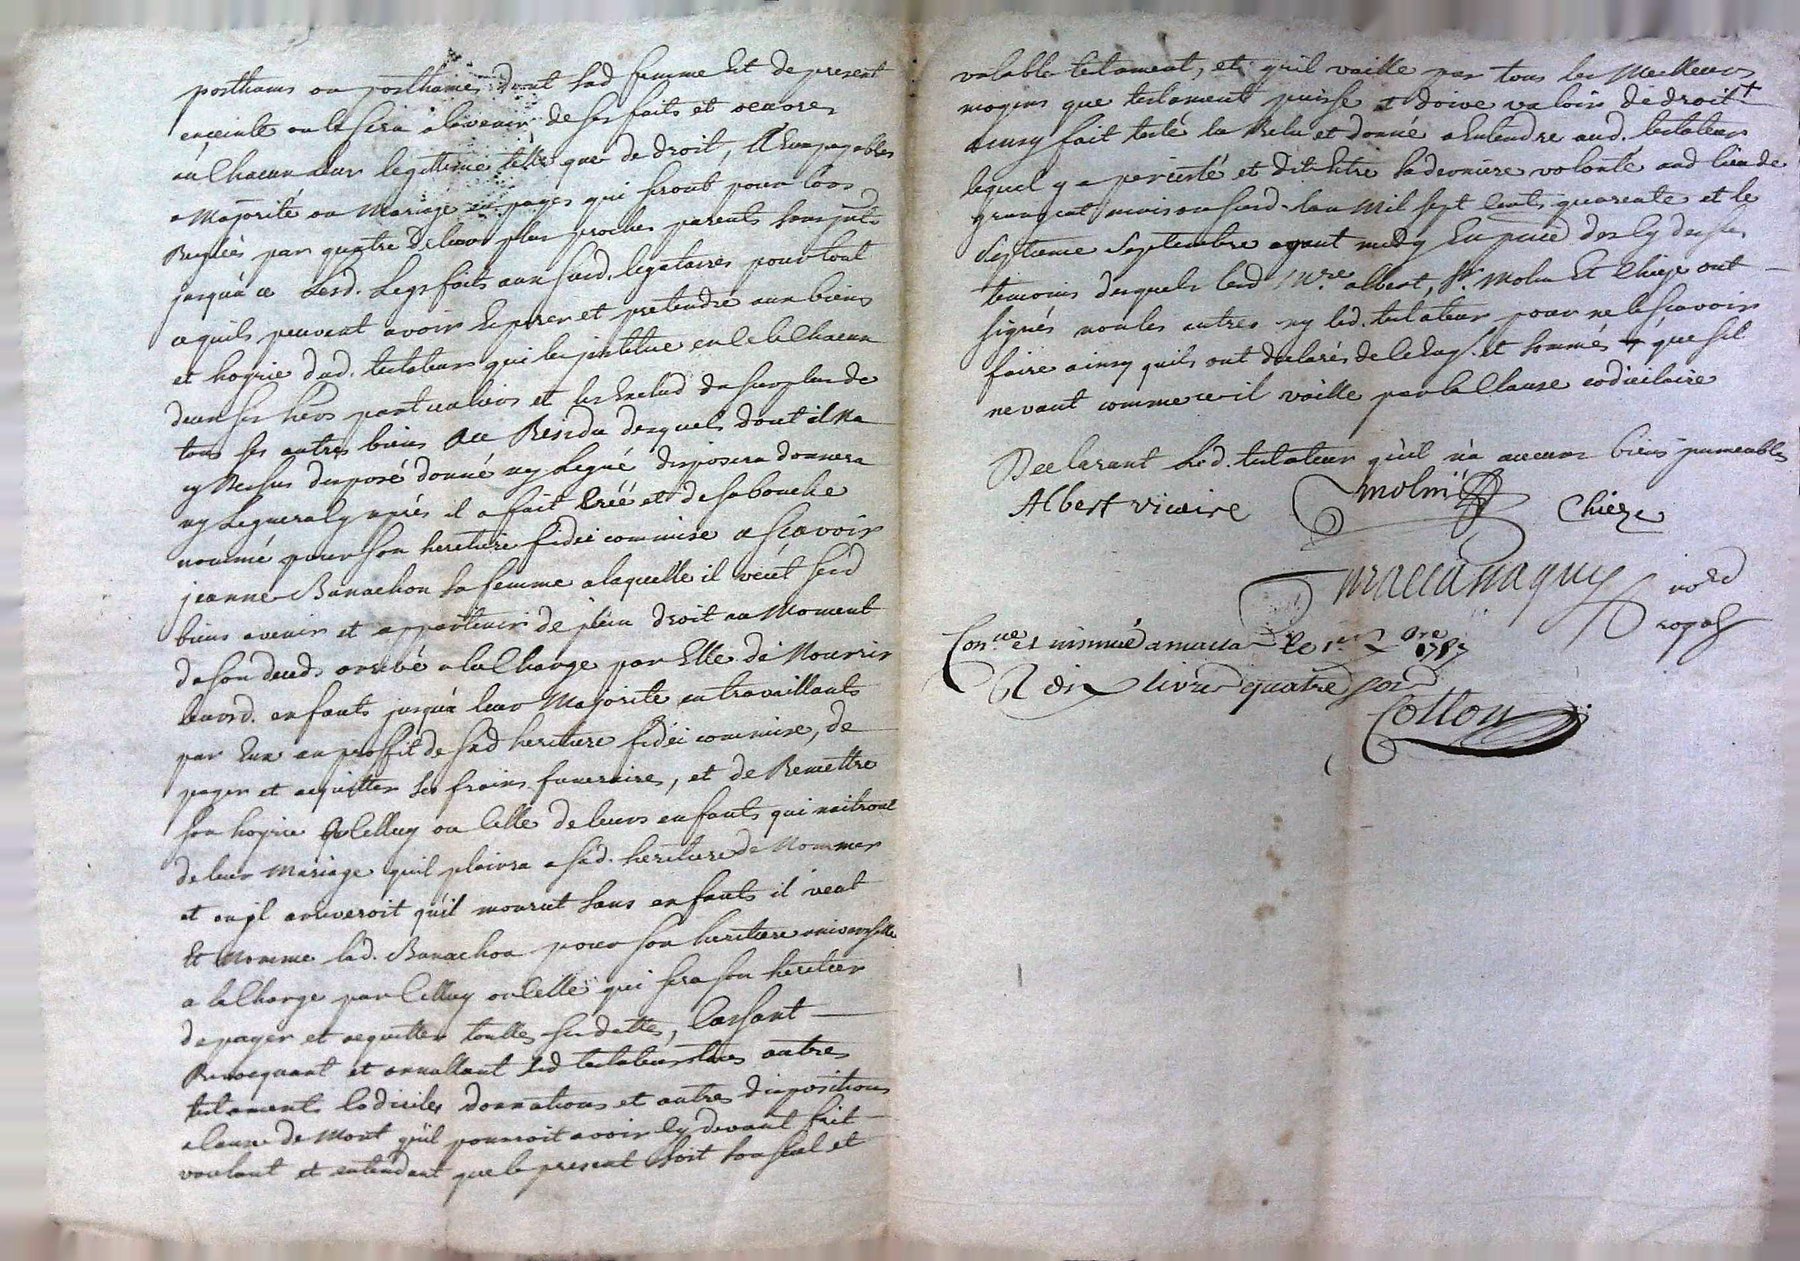 posthums ou posthumes dont sad femme Est de present
enceinte ou le sera a lavenir de ses faits et oeuvres
a Chacun leur legitime telle que de droit, Et En payables
a Majorité ou Mariage en pages qui seront pour lors
Reglées par quatre de leurs plus proches parents sans
jusqua ce Lesd. Legs faits aux susd. legataires pour tout
ce quils peuvent avoir Esperer et pretendre aux biens
et hoyrie dud. testateur qui les jnstitue en Ce la Chacun
deux ses hers particuliers et les Exclud du surplus de
tous ses autres biens au Residu desquels dont il Na
cy dessus disposé donné ny Legué disposera donnera
ny Leguera Cy après il a fait Créé et de sa bouche
nommé pour son heretiere fidei commise a scavoir
jeanne Banachon sa femme a laquelle il veut sesd
biens avenir et appartenir de plein droit au Moment
de son deceds arrivé a la Charge par Elle de Nourrir
leursd. enfants jusqua leur Majorité en travaillants
par Eux au proffit de sad heritiere fidei commise, de
payer et acquitter ses frais funeraires, et de Remettre
son hoyrie a Celluy ou Celle de leurs enfants qui naitront
de leur Mariage quil plaira a sad. heritiere de Nommer
et ou jl arriveroit qu'il mourut sans enfants il veut
Et Nomme lad. Banachon pour son heritiere universelle
a la Charge par Celluy ou Celle qui sera son heritier
de payer et acquitter touttes ses dettes, Cassant
Revocquant et annullant led testateur tous autres
testaments Codiciles donnations et autres dispositions
a Cause de Mort qu'il pourroit avoir Cy devant fait
voulant et entendant que le present soit son seul et
valable testament, et qu'il vaille par tous les Meilleurs
moyens que testament puisse et doive valoir de droit +
ainsy fait testé lu Relu et donné a Entendre aud. testateur
lequel y a persisté et dit Estre sa derniere volonté aud lieu de
maison susd. lan Mil sept Cents quarente et le
Septieme Septembre avant midy En pnce des Cy dessus
temoins desquels lesd Mre. albert, Sr. Molin Et Chieze ont
signés non les autres ny led. testateur pour ne le scavoir
faire ainsy quils ont declarés de le Enqs. et sommés que sil
ne vaut comme tel il vaille par la Clause codicilaire
Declarant led. testateur qu'il n'a aucuns biens jmeubles
Albert vicaire molin Chieze
nore
royal
Con.lé et insinué a le 1er 7bre
livre quatre sols
Collon